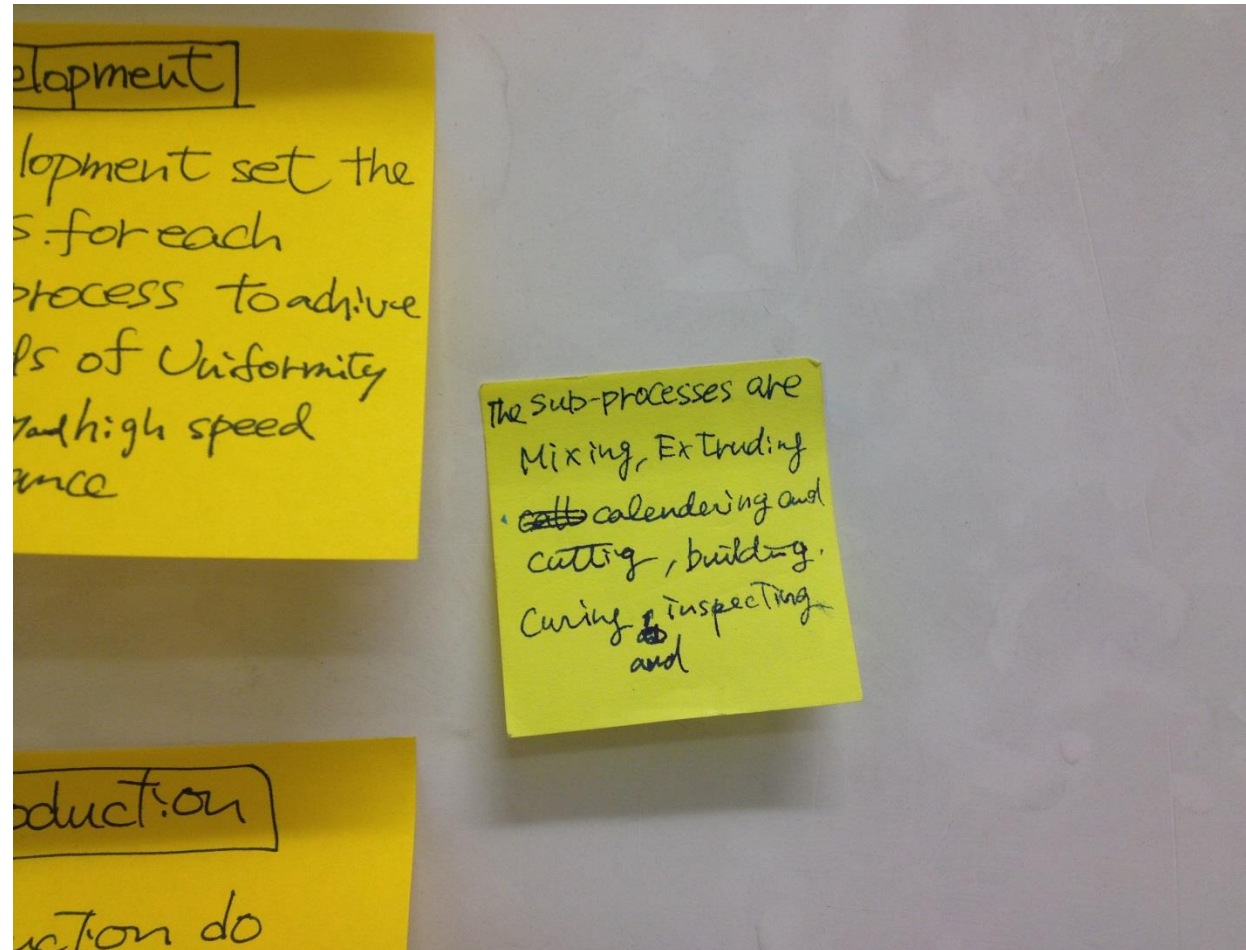 elopment
lopment set the
s. for each
process to adhive
ls of Uniformity
and high speed
ance
The sub-processes are
Mixing, Extruding
calendering and
cuttig, building.
Curing, inspecting
and
oduction
uction do